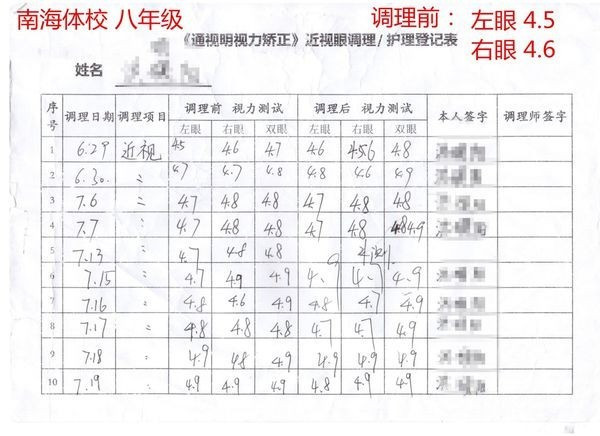 南海体校 八年级
调理前：左眼 4.5
右眼 4.6
《通视明视力矫正》近视眼调理/护理登记表
姓名
序号 调理日期 调理项目 调理前 视力测试 调理后 视力测试 本人签字 调理师签字
左眼 右眼 双眼 左眼 右眼 双眼
1 6.29 近视 4.5 4.6 4.7 4.6 4.8
2 6.30. 〃 4.7 4.7 4.8 4.8 4.6 4.9
3 7.6 〃 4.7 4.8 4.8 4.7 4.8 4.8
4 7.7 〃 4.7 4.8 4.8 4.7 4.8 4.9
5 7.13 〃 4.7 4.8 4.8
6 7.15 〃 4.7 4.9 4.9 4.9
7 7.16 〃 4.8 4.6 4.9 4.8 4.7 4.9
8 7.17 〃 4.8 4.8 4.8 4.7 4.7 4.9
9 7.18 〃 4.9 4.8 4.9 4.9 4.9 4.9
10 7.19 〃 4.9 4.9 4.9 4.8 4.9 4.9